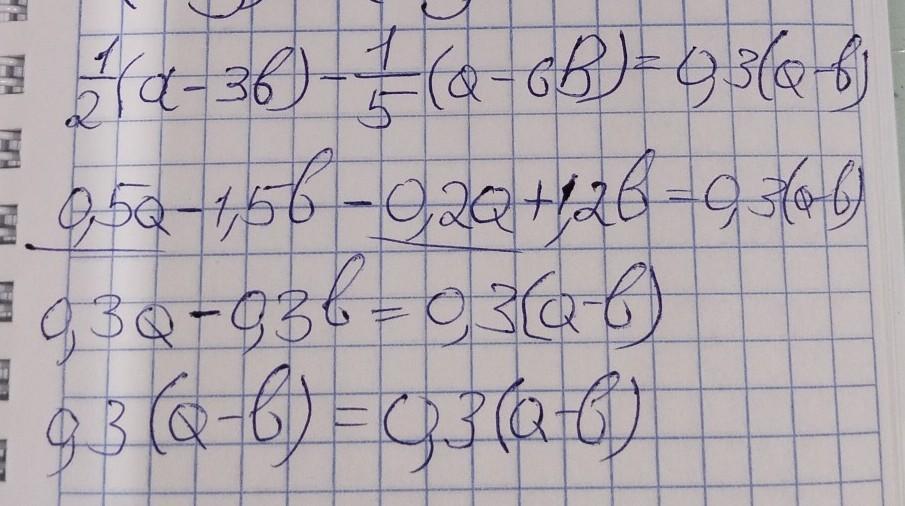 1/2(a-3b)-1/5(a-6b)=0,3(a-b)
0,5a-1,5b-0,2a+1,2b=0,3(a-b)
0,3a-0,3b=0,3(a-b)
0,3(a-b)=0,3(a-b)